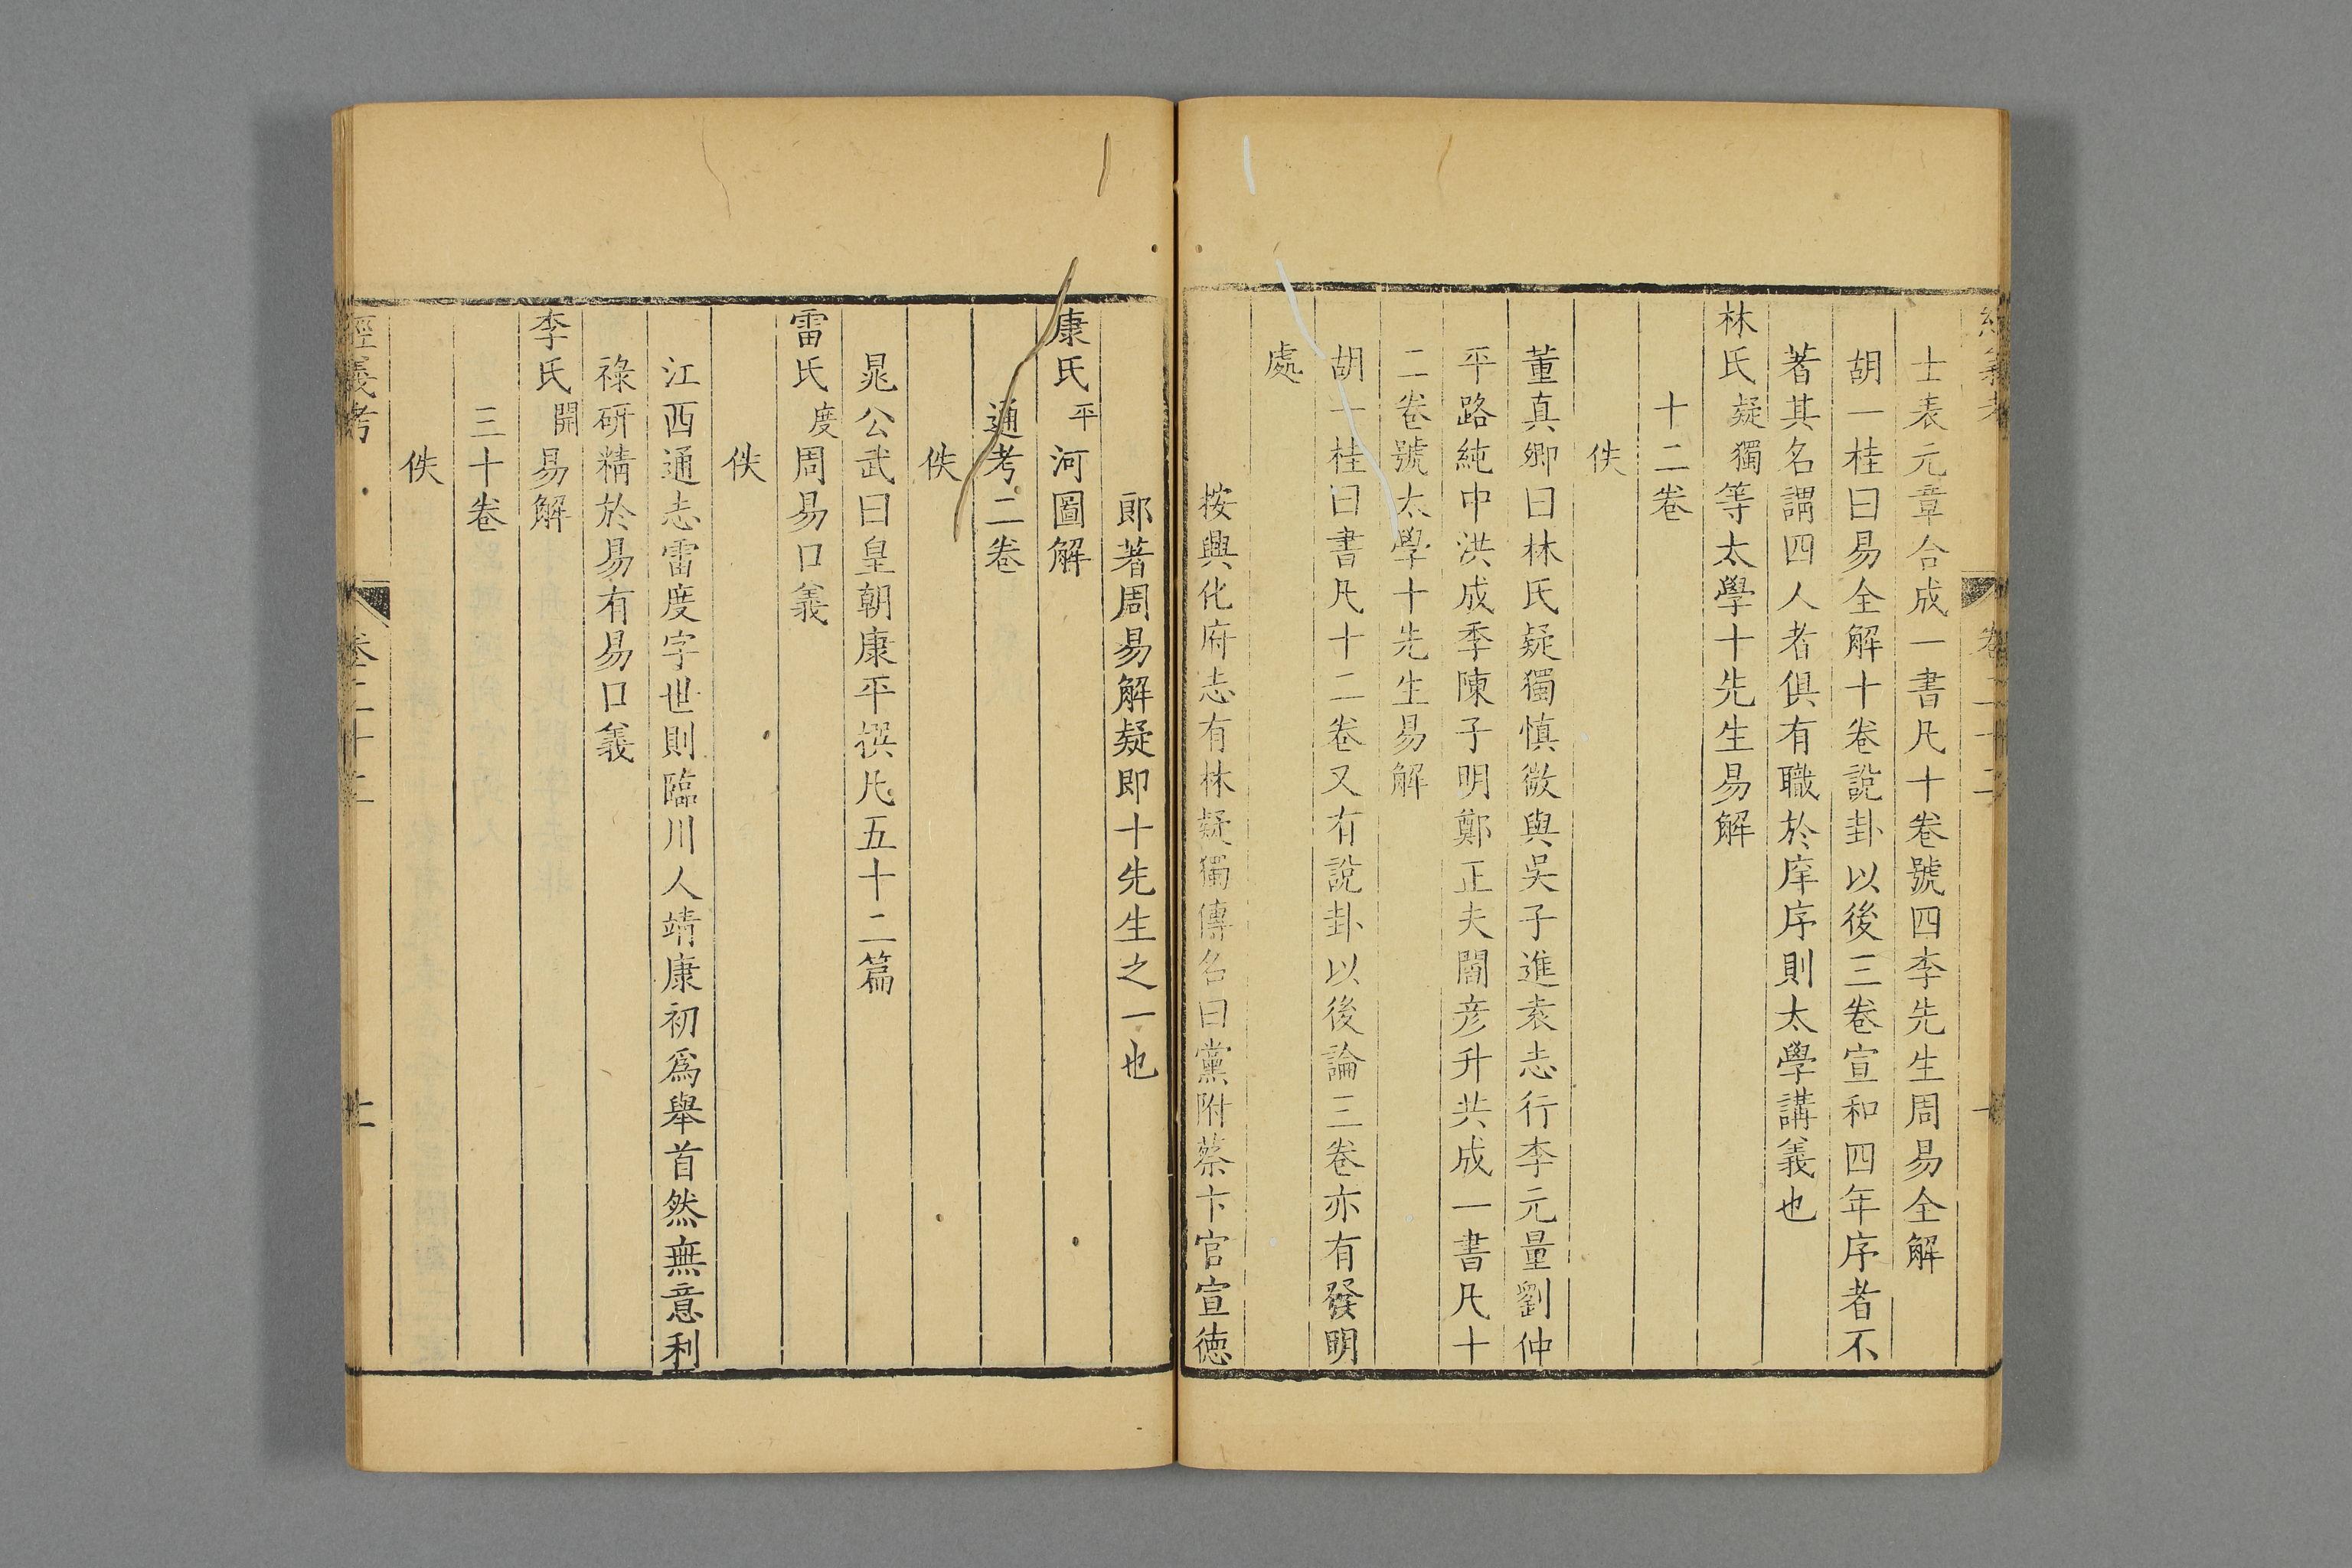 經義考 卷二十二
士表元章合成一書凡十卷號四李先生周易全解
胡一桂曰易全解十卷說卦以後三卷宣和四年序者不
著其名謂四人者俱有職於庠序則太學講義也
林氏疑獨等太學十先生易解
十二卷
佚
董真卿曰林氏疑獨慎微與吳子進袁志行李元量劉仲
平路純中洪成季陳子明鄭正夫閻彦升共成一書凡十
二卷號太學十先生易解
胡一桂曰書凡十二卷又有說卦以後論三卷亦有發明
處
按興化府志有林疑獨傳名曰黨附蔡卞官宣德
郎著周易解疑即十先生之一也
康氏平河圖解
通考二卷
佚
晁公武曰皇朝康平撰凡五十二篇
雷氏度周易口義
佚
江西通志雷度字世則臨川人靖康初爲舉首然無意利
祿研精於易有易口義
李氏開易解
三十卷
佚
經義考 卷二十二 十